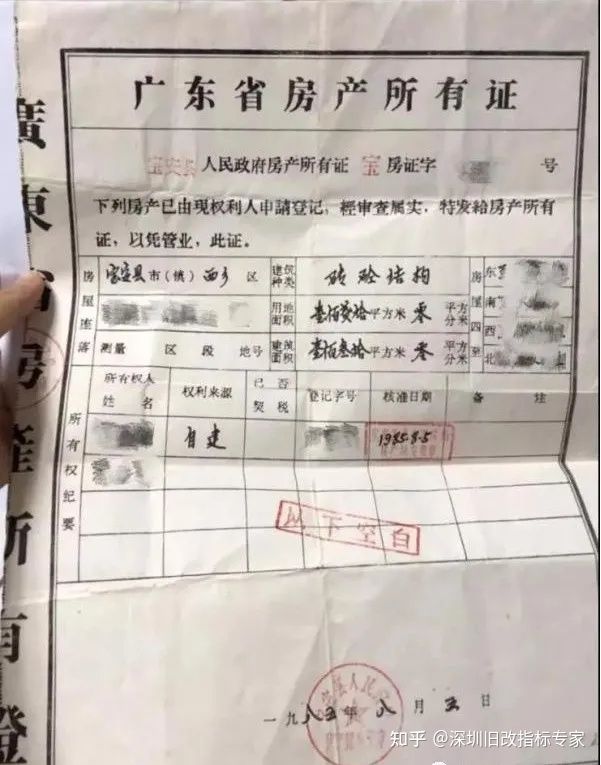 广东省房产所有证
宝安县人民政府房产所有证 宝 房证字 号
下列房产已由现权利人申請登记，經审查属实，特发給房产所有
证，以凭管业，此证。
房屋座落 宝安县市(镇)西乡区 建筑种类 砖砼结构 房屋四至 东
用地面积 平方米零平方分米 南
西
测量 区 段 地号 建筑面积 壹佰叁拾平方米零平方分米 北
所有权纪要 所有权人姓名 权利来源 已否契税 登记字号 核准日期 备注
自建 1985.8.5
以下空白
一九八五年八月五日
廣東省房產所有證
知乎 @深圳旧改指标专家